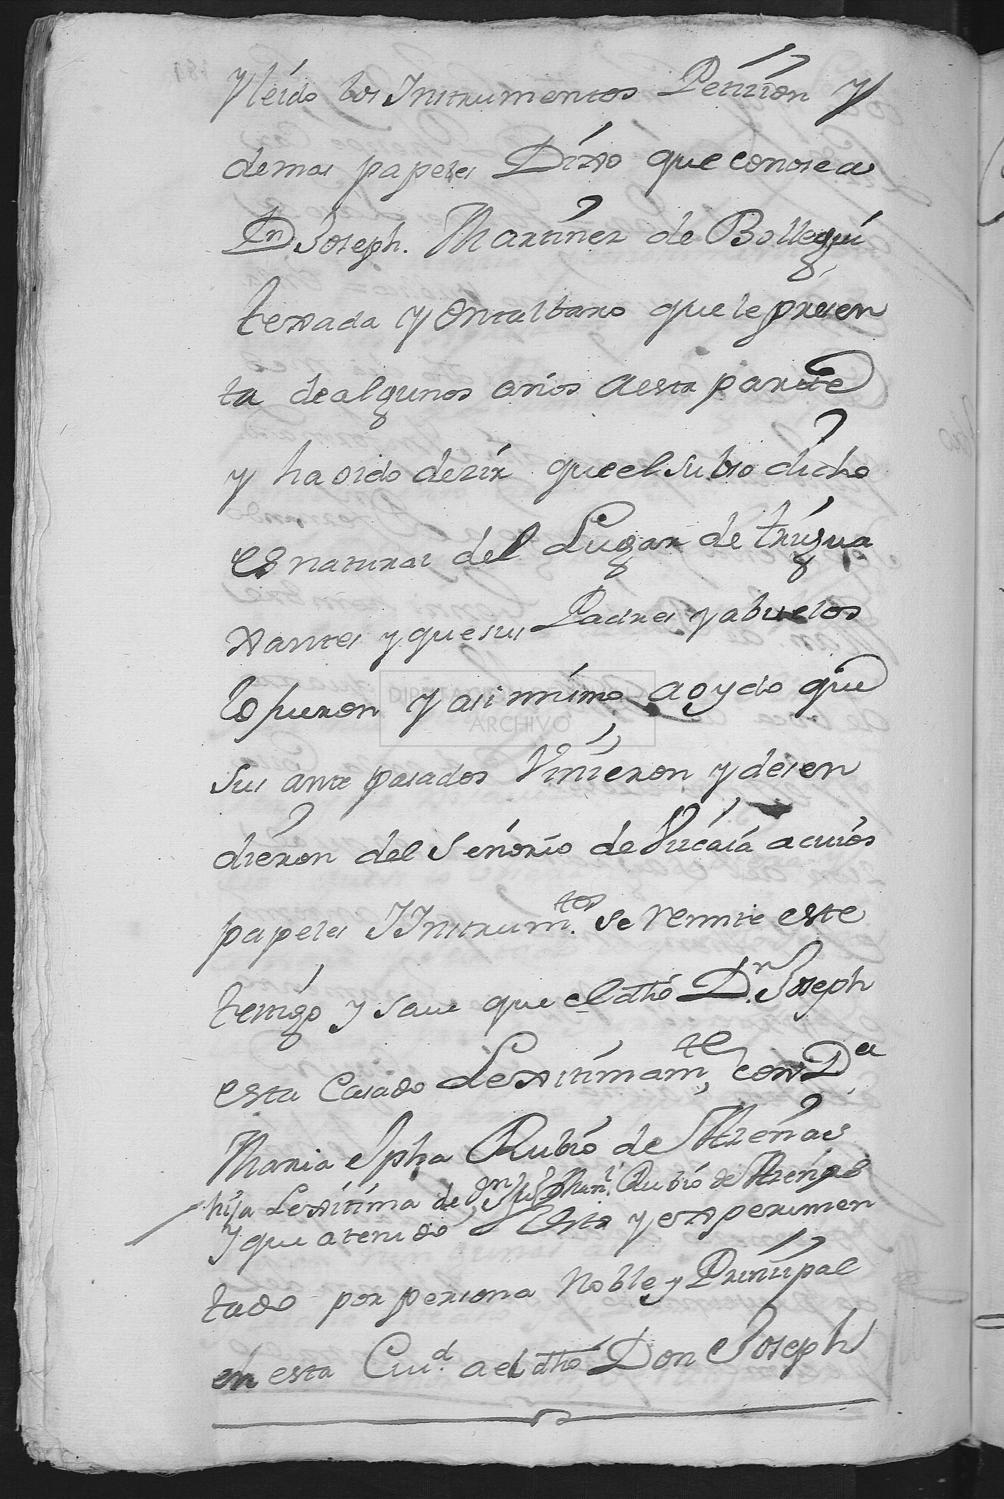 y leido los Instrumentos Petizion y
demas papeles Dixo que conose a
Dn Joseph. Martinez de Bollegui
texada y Ontalbaro que le presen
ta de algunos años a esta parte
y ha oido dezir que el subso dicho
es natural del Lugar de trigua
xantes y que sus Padres y abuelos
lo fueron y asi mismo a oydo que
sus ante pasados Vinieron y desen
dieron del señorio de Vizcaia a cuios
papeles Y Instrumtos. se remite este
testigo y save que el dho Dn. Joseph
esta Casado Lexitimamte con Da
Maria Jpha Rubio de Atienzas
hija Lexitima de Dn Juo Manl. Rubio de Atienzas
y que a tenido Vista y experimen
tado por persona Noble y Prinzipal
en esta Ciud. a el dho Don Joseph
DIPUTACION
ARCHIVO